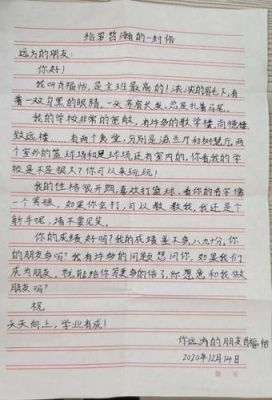 给罗思瀚的一封信
远方的朋友:
你好!
我叫肖福怡,是全班最高的!浓浓的眉毛下,有
着一双乌黑的眼睛,一头乌黑长发,总是扎着马尾。
我的学校非常的美丽,有许多的教学楼,尚德楼,
致远楼 有两个食堂,分别是海兰厅和树慧厅,两
个室外的篮球场和足球场还有室内的,你看我的学
校是不是很大?你可以来玩玩!
我的性格很开朗,喜欢打篮球,看你的名字像
一个男孩,如果你会打,可以教教我,我还是个
新手呢,请不要见笑。
你的成绩好吗?我的成绩差不多八九十分,你
的朋友多吗?我有许多的问题想问你,如果我们
成为朋友,就能给你写更多的信了,你愿意和我做
朋友吗?
祝
天天向上,学业有成!
你远方的朋友肖福怡
2020年12月14日